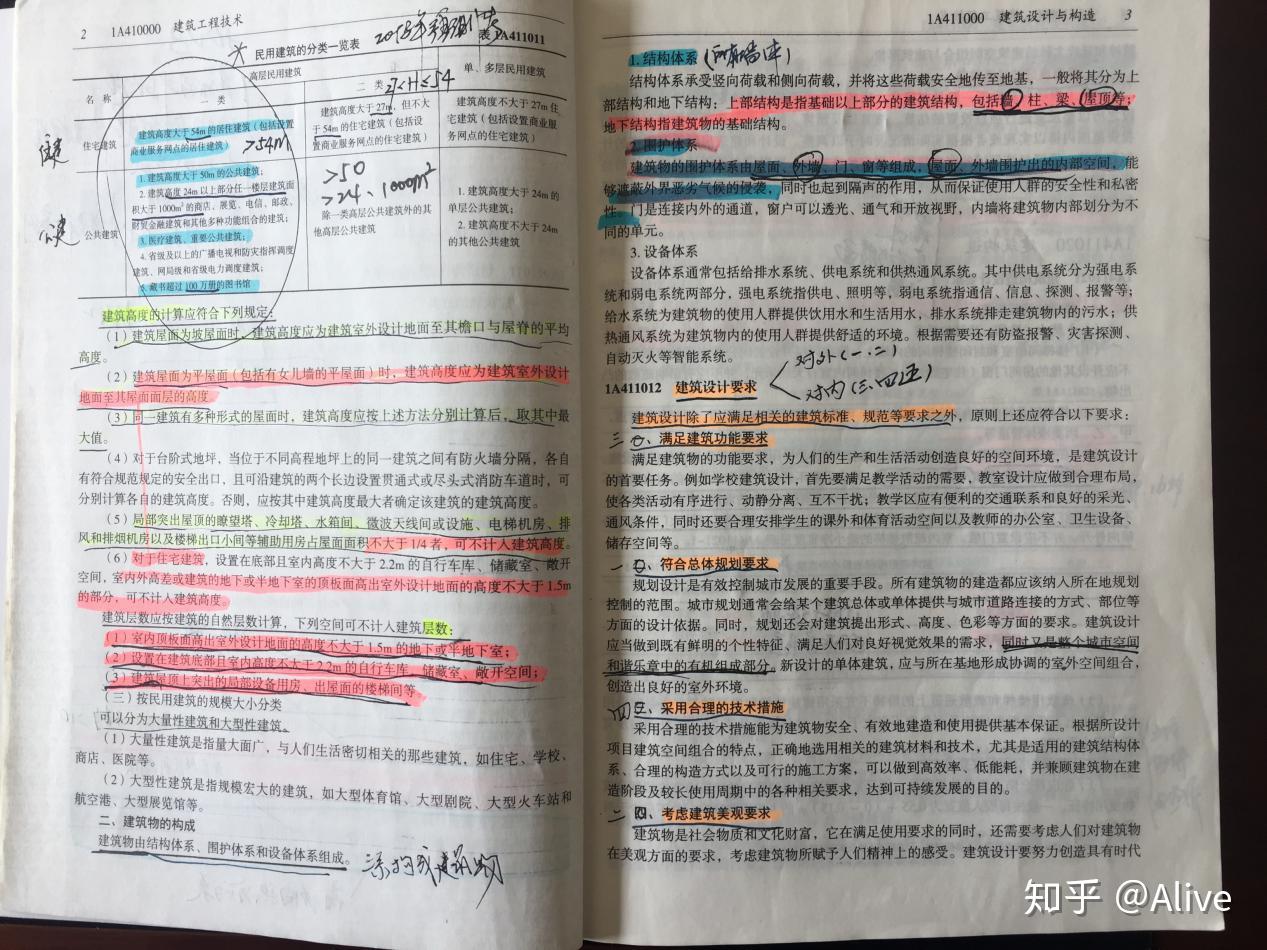 2 1A410000 建筑工程技术
民用建筑的分类一览表
表1A411011
名 称
高层民用建筑
单、多层民用建筑
一 类
二 类
27<H≤54
住宅建筑
建筑高度大于54m的居住建筑（包括设置
商业服务网点的居住建筑）
>54M
建筑高度大于27m，但不大
于54m的住宅建筑（包括设
置商业服务网点的住宅建筑）
建筑高度不大于27m住
宅建筑（包括设置商业服
务网点的住宅建筑）
公共建筑
1. 建筑高度大于50m的公共建筑；
2. 建筑高度24m以上部分任一楼层建筑面
积大于1000m²的商店、展览、电信、邮政、
财贸金融建筑和其他多种功能组合的建筑；
3. 医疗建筑、重要公共建筑；
4. 省级及以上的广播电视和防灾指挥调度
建筑、网局级和省级电力调度建筑；
5. 藏书超过100万册的图书馆
>50
>24、1000m²
除一类高层公共建筑外的其
他高层公共建筑
1. 建筑高度大于24m的
单层公共建筑；
2. 建筑高度不大于24m
的其他公共建筑
住建
公建
建筑高度的计算应符合下列规定：
（1）建筑屋面为坡屋面时，建筑高度应为建筑室外设计地面至其檐口与屋脊的平均
高度。
（2）建筑屋面为平屋面（包括有女儿墙的平屋面）时，建筑高度应为建筑室外设计
地面至其屋面面层的高度。
（3）同一建筑有多种形式的屋面时，建筑高度应按上述方法分别计算后，取其中最
大值。
（4）对于台阶式地坪，当位于不同高程地坪上的同一建筑之间有防火墙分隔，各自
有符合规范规定的安全出口，且可沿建筑的两个长边设置贯通式或尽头式消防车道时，可
分别计算各自的建筑高度。否则，应按其中建筑高度最大者确定该建筑的建筑高度。
（5）局部突出屋顶的瞭望塔、冷却塔、水箱间、微波天线间或设施、电梯机房、排
风和排烟机房以及楼梯出口小间等辅助用房占屋面面积不大于1/4者，可不计入建筑高度。
（6）对于住宅建筑，设置在底部且室内高度不大于2.2m的自行车库、储藏室、敞开
空间，室内外高差或建筑的地下或半地下室的顶板面高出室外设计地面的高度不大于1.5m
的部分，可不计入建筑高度。
建筑层数应按建筑的自然层数计算，下列空间可不计入建筑层数：
（1）室内顶板面高出室外设计地面的高度不大于1.5m的地下或半地下室；
（2）设置在建筑底部且室内高度不大于2.2m的自行车库、储藏室、敞开空间；
（3）建筑屋顶上突出的局部设备用房、出屋面的楼梯间等。
（三）按民用建筑的规模大小分类
可以分为大量性建筑和大型性建筑。
（1）大量性建筑是指量大面广，与人们生活密切相关的那些建筑，如住宅、学校、
商店、医院等。
（2）大型性建筑是指规模宏大的建筑，如大型体育馆、大型剧院、大型火车站和
航空港、大型展览馆等。
二、建筑物的构成
建筑物由结构体系、围护体系和设备体系组成。
1A411000 建筑设计与构造 3
1. 结构体系
结构体系承受竖向荷载和侧向荷载，并将这些荷载安全地传至地基，一般将其分为上
部结构和地下结构：上部结构是指基础以上部分的建筑结构，包括墙、柱、梁、屋顶等；
地下结构指建筑物的基础结构。
2. 围护体系
建筑物的围护体系由屋面、外墙、门、窗等组成，屋面、外墙围护出的内部空间，能
够遮蔽外界恶劣气候的侵袭，同时也起到隔声的作用，从而保证使用人群的安全性和私密
性。门是连接内外的通道，窗户可以透光、通气和开放视野，内墙将建筑物内部划分为不
同的单元。
3. 设备体系
设备体系通常包括给排水系统、供电系统和供热通风系统。其中供电系统分为强电系
统和弱电系统两部分，强电系统指供电、照明等，弱电系统指通信、信息、探测、报警等；
给水系统为建筑物的使用人群提供饮用水和生活用水，排水系统排走建筑物内的污水；供
热通风系统为建筑物内的使用人群提供舒适的环境。根据需要还有防盗报警、灾害探测、
自动灭火等智能系统。
对外（一.二）
1A411012 建筑设计要求
对内（三.四）
建筑设计除了应满足相关的建筑标准、规范等要求之外，原则上还应符合以下要求：
三 一、满足建筑功能要求
满足建筑物的功能要求，为人们的生产和生活活动创造良好的空间环境，是建筑设计
的首要任务。例如学校建筑设计，首先要满足教学活动的需要，教室设计应做到合理布局，
使各类活动有序进行、动静分离、互不干扰；教学区应有便利的交通联系和良好的采光、
通风条件，同时还要合理安排学生的课外和体育活动空间以及教师的办公室、卫生设备、
储存空间等。
一 二、符合总体规划要求
规划设计是有效控制城市发展的重要手段。所有建筑物的建造都应该纳入所在地规划
控制的范围。城市规划通常会给某个建筑总体或单体提供与城市道路连接的方式、部位等
方面的设计依据。同时，规划还会对建筑提出形式、高度、色彩等方面的要求。建筑设计
应当做到既有鲜明的个性特征、满足人们对良好视觉效果的需求，同时又是整个城市空间
和谐乐章中的有机组成部分。新设计的单体建筑，应与所在基地形成协调的室外空间组合，
创造出良好的室外环境。
四 三、采用合理的技术措施
采用合理的技术措施能为建筑物安全、有效地建造和使用提供基本保证。根据所设计
项目建筑空间组合的特点，正确地选用相关的建筑材料和技术，尤其是适用的建筑结构体
系、合理的构造方式以及可行的施工方案，可以做到高效率、低能耗，并兼顾建筑物在建
造阶段及较长使用周期中的各种相关要求，达到可持续发展的目的。
二 四、考虑建筑美观要求
建筑物是社会物质和文化财富，它在满足使用要求的同时，还需要考虑人们对建筑物
在美观方面的要求，考虑建筑物所赋予人们精神上的感受。建筑设计要努力创造具有时代
知乎 @Alive